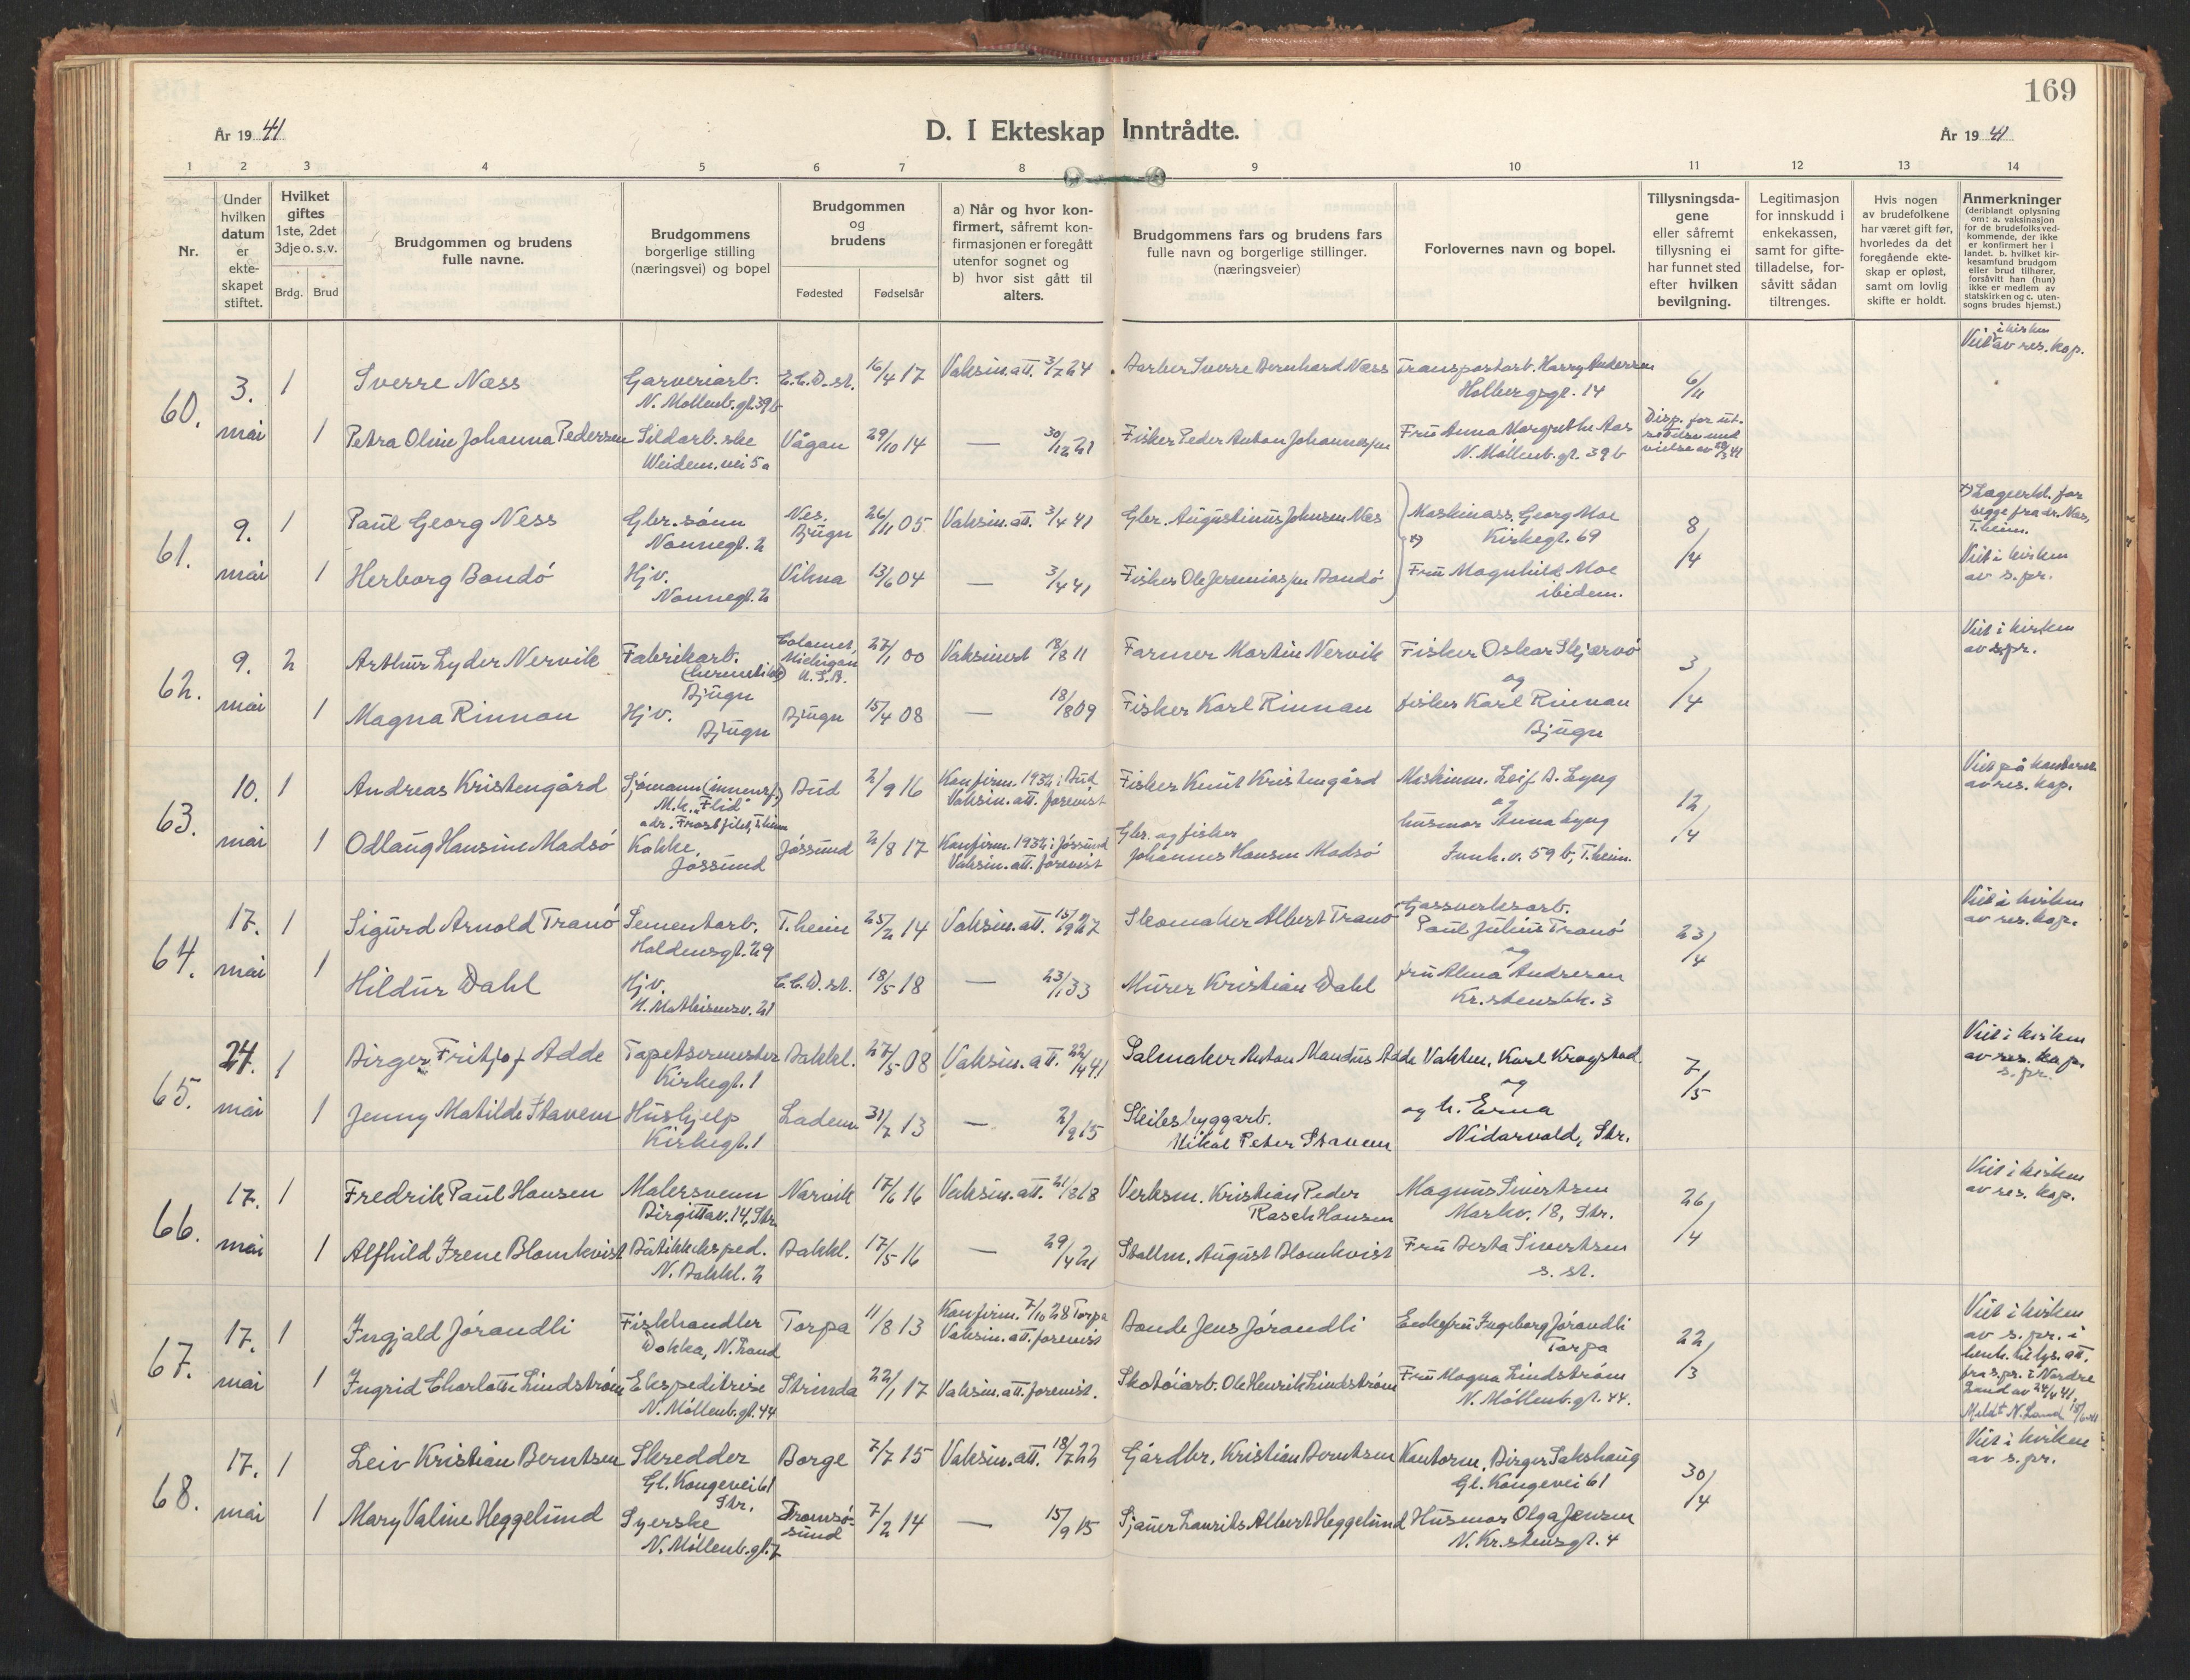 169
År 19 41
D. I Ekteskap Inntrådte.
År 19 41
1 2 3 4 5 6 7 8 9 10 11 12 13 14
Nr.
Under hvilken datum er ekte- skapet stiftet.
Hvilket giftes 1ste, 2det 3dje o. s. v.
Brdg. Brud
Brudgommen og brudens fulle navne.
Brudgommens borgerlige stilling (næringsvei) og bopel
Brudgommen og brudens
Fødested Fødselsår
a) Når og hvor kon- firmert, såfremt kon- firmasjonen er foregått utenfor sognet og b) hvor sist gått til alters.
Brudgommens fars og brudens fars fulle navn og borgerlige stillinger. (næringsveier)
Forlovernes navn og bopel.
Tillysningsda- gene eller såfremt tillysning ei har funnet sted efter hvilken bevilgning.
Legitimasjon for innskudd i enkekassen, samt for gifte- tilladelse, for- såvitt sådan tiltrenges.
Hvis nogen av brudefolkene har været gift før, hvorledes da det foregående ekte- skap er opløst, samt om lovlig skifte er holdt.
Anmerkninger (deriblandt oplysning om: a. vaksinasjon for de brudefolksved- kommende, der ikke er konfirmert her i landet. b. hvilket kir- kesamfund brudgom eller brud tilhører, forsåvitt han (hun) ikke er medlem av statskirken og c. uten- sogns brudes hjemst.)
60. 3. mai
1 Sverre Næss Garveriarb. N. Møllenb.gt.39b E.C.D.st. 16/4 17 Vaksin.att. 3/7 24 Sverre Bernhard Næss Transportarb. Harry Andersen Holbergsgt. 14 6/11
i kirken
Viet av res. kap.
1 Petra Oline Johanna Pedersen Sildarb.ske Weidem.vei 5a Vågan 29/10 14 — 30/12 21 Fisker Peder Anton Johannessen Fru Anna Margrethe Aas N. Møllenb.gt. 39b
Disp. for ut-
61. 9. mai
1 Paul Georg Ness Gbr.sønn Nonnegt. 2 Nes, Bjugn 26/11 05 Vaksin.att. 3/4 41 Gbr. Augustinus Johnsen Næs Maskinass. Georg Moe Kirkegt. 69 8/4
x) Lægeerkl. for begge fra dr. Næs, T.heim.
Viet i kirken av s.pr.
1 Herborg Bondø Hj.v. Nonnegt. 2 Vikna 13/6 04 — 3/4 41 Fisker Ole Jeremiassen Bondø Fru Magnhild Moe ibidem.
62. 9. mai
2 Arthur Lyder Nervik Fabrikarb. (hermetikk) Bjugn Calumet, Michigan U.S.A. 27/1 00 Vaksinert 18/8 11 Farmer Martin Nervik Fisker Oskar Skjærvø og 3/4
Viet i kirken av s.pr.
1 Magna Rinnan Hj.v. Bjugn Bjugn 15/4 08 — 18/8 09 Fisker Karl Rinnan fisker Karl Rinnan Bjugn
63. 10. mai
1 Andreas Kristengård Sjømann (innenrf.) M.k. "Flid" adr. Frostfilet, T.heim Bud 2/9 16 Konfirm. 1932 i Bud Vaksin.att. forevist Fisker Knut Kristengård Maskinm. Leif B. Lyng og 12/4
Viet på kontoret av res. kap.
1 Odlaug Hansine Madsø Kokke, Jøssund Jøssund 2/8 17 Konfirm. 1932 i Jøssund Vaksin.att. forevist Gbr. og fisker Johannes Hansen Madsø husmor Anna Lyng Innh.v. 59b, T.heim.
64. 17. mai
1 Sigurd Arnold Tranø Sementarb. Holdensgt. 29 T.heim 25/2 14 Vaksin.att. 15/9 27 Skomaker Albert Tranø Gassverksarb. Paul Julius Tranø og 23/4
Viet i kirken av res. kap.
1 Hildur Dahl Hj.v. H. Mathisensv. 21 E.C.D.st. 18/5 18 — 23/1 33 Murer Kristian Dahl fru Alma Andresen Kr.stensbk. 3
65. 24. mai
1 Birger Fritjof Adde Tapetsermester Kirkegt. 1 Bakkl. 27/5 08 Vaksin.att. 22/4 41 Salmaker Anton Mandus Adde Vaktm. Karl Krogstad og 7/5
Viet i kirken av res. kap. s.pr.
1 Jenny Matilde Stavem Hushjelp Kirkegt. 1 Lademo 31/7 13 — 2/9 15 Skibsbyggarb. Mikal Peter Stavem og h. Erna Nidarvold, Str.
66. 17. mai
1 Fredrik Paul Hansen Malersvenn Birgittav. 14, Str. Narvik 17/6 16 Vaksin.att. 21/8 18 Verksm. Kristian Peder Rasch Hansen Magnus Sivertsen Markv. 18, Str. 26/4
Viet i kirken av res. kap.
1 Alfhild Irene Blomkvist Butikkeksped. N. Bakkl. 2 Bakkl. 17/5 16 — 29/4 21 Stallm. August Blomkvist Fru Berta Sivertsen s. st.
67. 17. mai
1 Ingjald Jørandli Fiskhandler Dokka, N. Land Torpa 11/8 13 Konfirm. 7/10 28 Torpa Vaksin.att. forevist Bonde Jens Jørandli Enkefru Ingeborg Jørandli Torpa 22/3
Viet i kirken av s.pr. i henh. til lys.att. fra s.pr. i Nordre Land av 24/4 41.
Meldt N. Land 15/6 41
1 Ingrid Charlotte Lindstrøm Ekspeditrise N. Møllenb.gt. 44 Strinda 22/1 17 Vaksin.att. forevist. Skotøiarb. Ole Henrik Lindstrøm Fru Magna Lindstrøm N. Møllenb.gt. 44.
68. 17. mai
1 Leiv Kristian Berntsen Skredder Gl. Kongevei 61 Str. Borge 7/7 15 Vaksin.att. 18/7 22 Gårdbr. Kristian Berntsen Kontorm. Birger Sakshaug Gl. Kongevei 61 30/4
Viet i kirken av s.pr.
1 Mary Valine Heggelund Syerske N. Møllenb.gt. 7 Tromsø- sund 7/2 14 — 15/9 15 Sjauer Laurits Albert Heggelund Husmor Olga Jensen N. Kr.stensgt. 4